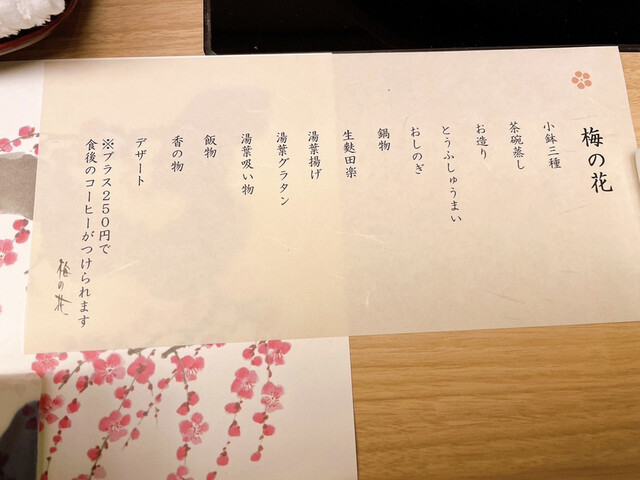 梅の花
小鉢三種
茶碗蒸し
お造り
とうふしゅうまい
おしのぎ
鍋物
生麩田楽
湯葉揚げ
湯葉グラタン
湯葉吸い物
飯物
香の物
デザート
※プラス２５０円で
食後のコーヒーがつけられます
梅の花